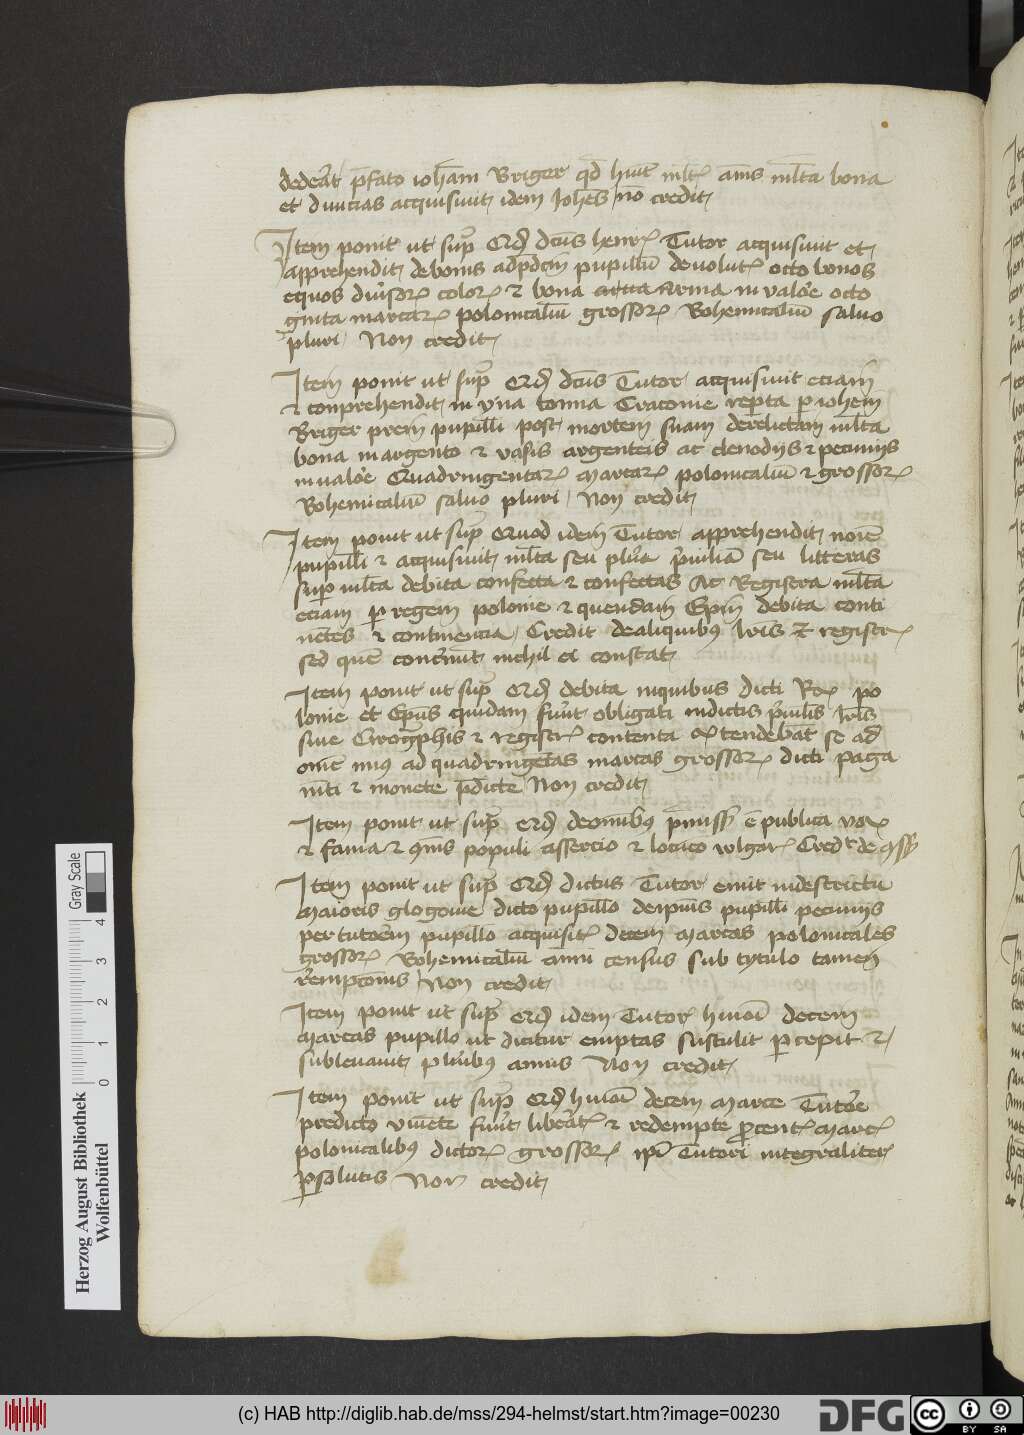 dedert p̄fato ioh̄am Briger qd̄ hūit ml̄t annis ml̄ta bona
et diuicias acquisiuit idem Ioh̄es no credit
Item ponit ut sup̄ Qd̄ dc̄us henr Tutor acquisiuit et
apprehendit de bonis ad p̄dcm̄ pupillū deuolut octo bonos
equos diūsor color & bona arma in valoē octo
ginta marcar polonicaliū grossor Bohemicaliū saluo
pluri Non credit
Item ponit ut sup̄ Qd̄ dc̄us Tutor acquisiuit eciam
& conprehendit in vna tonna Craconie rep̄ta p ioh̄em
Briger prem pupilli post mortem suam derelictam ml̄ta
bona in argento & vasis argenteis ac clenodijs & pecunijs
in valoē Quadringentar Marcar polonicaliū & grossor
Bohemicaliū saluo pluri Non credit
Item ponit ut sup̄ Quod idem Tutor apprehendit noīe
pupilli & acquisiuit ml̄ta seu plūa p̄uilia seu litteras
sup ml̄ta debita confecta & confectas Ac Registra ml̄ta
eciam p regem polonie & quendam Ep̄m debita conti
nētes & continencia Credit de aliquibus lr̄is & registr
sed quē contin̄ut nichil ei constat
Item ponit ut sup̄ Qd̄ debita in quibus dicti Rex po
lonie et Ep̄us quidam fuūt obligati in dictis p̄uil̄is lr̄is
siue Cirogphis & registr contenta extendebāt se ad
om̄e mi9 ad quadringētas marcas grossor dicti paga
mēti & monete p̄dicte Non credit
Item ponit ut sup̄ Qd̄ de omibus p̄miss̄ ē publica vox
& fama & 9mis populi assercio & locucō wlgar Credt de 9ss̄
Item ponit ut sup̄ Qd̄ dictus Tutor emit in destrictu
Maioris glogouie dicto pupillo de ip̄ius pupilli pecunijs
per tutorem pupillo acquisit decem Marcas polonicales
grossor Bohemicaliū annui census sub tytulo tamen
reempcōnis Non credit
Item ponit ut sup̄ Qd̄ idem Tutor hmōi decem
Marcas pupillo ut dicitur emptas sustulit pcepit &
subleuauit plūibus annis Non credit
Item ponit ut sup̄ Qd̄ hmōi decem Marce Tutoē
predicto viuēte fuūt liberat & redempte pcent Marc
polonicalibus dictor grossor ip̄i Tutori integraliter
psolutis Non credit
Herzog August Bibliothek
Wolfenbüttel
Gray Scale
0 1 2 3 4
(c) HAB http://diglib.hab.de/mss/294-helmst/start.htm?image=00230
DFG
CC BY SA